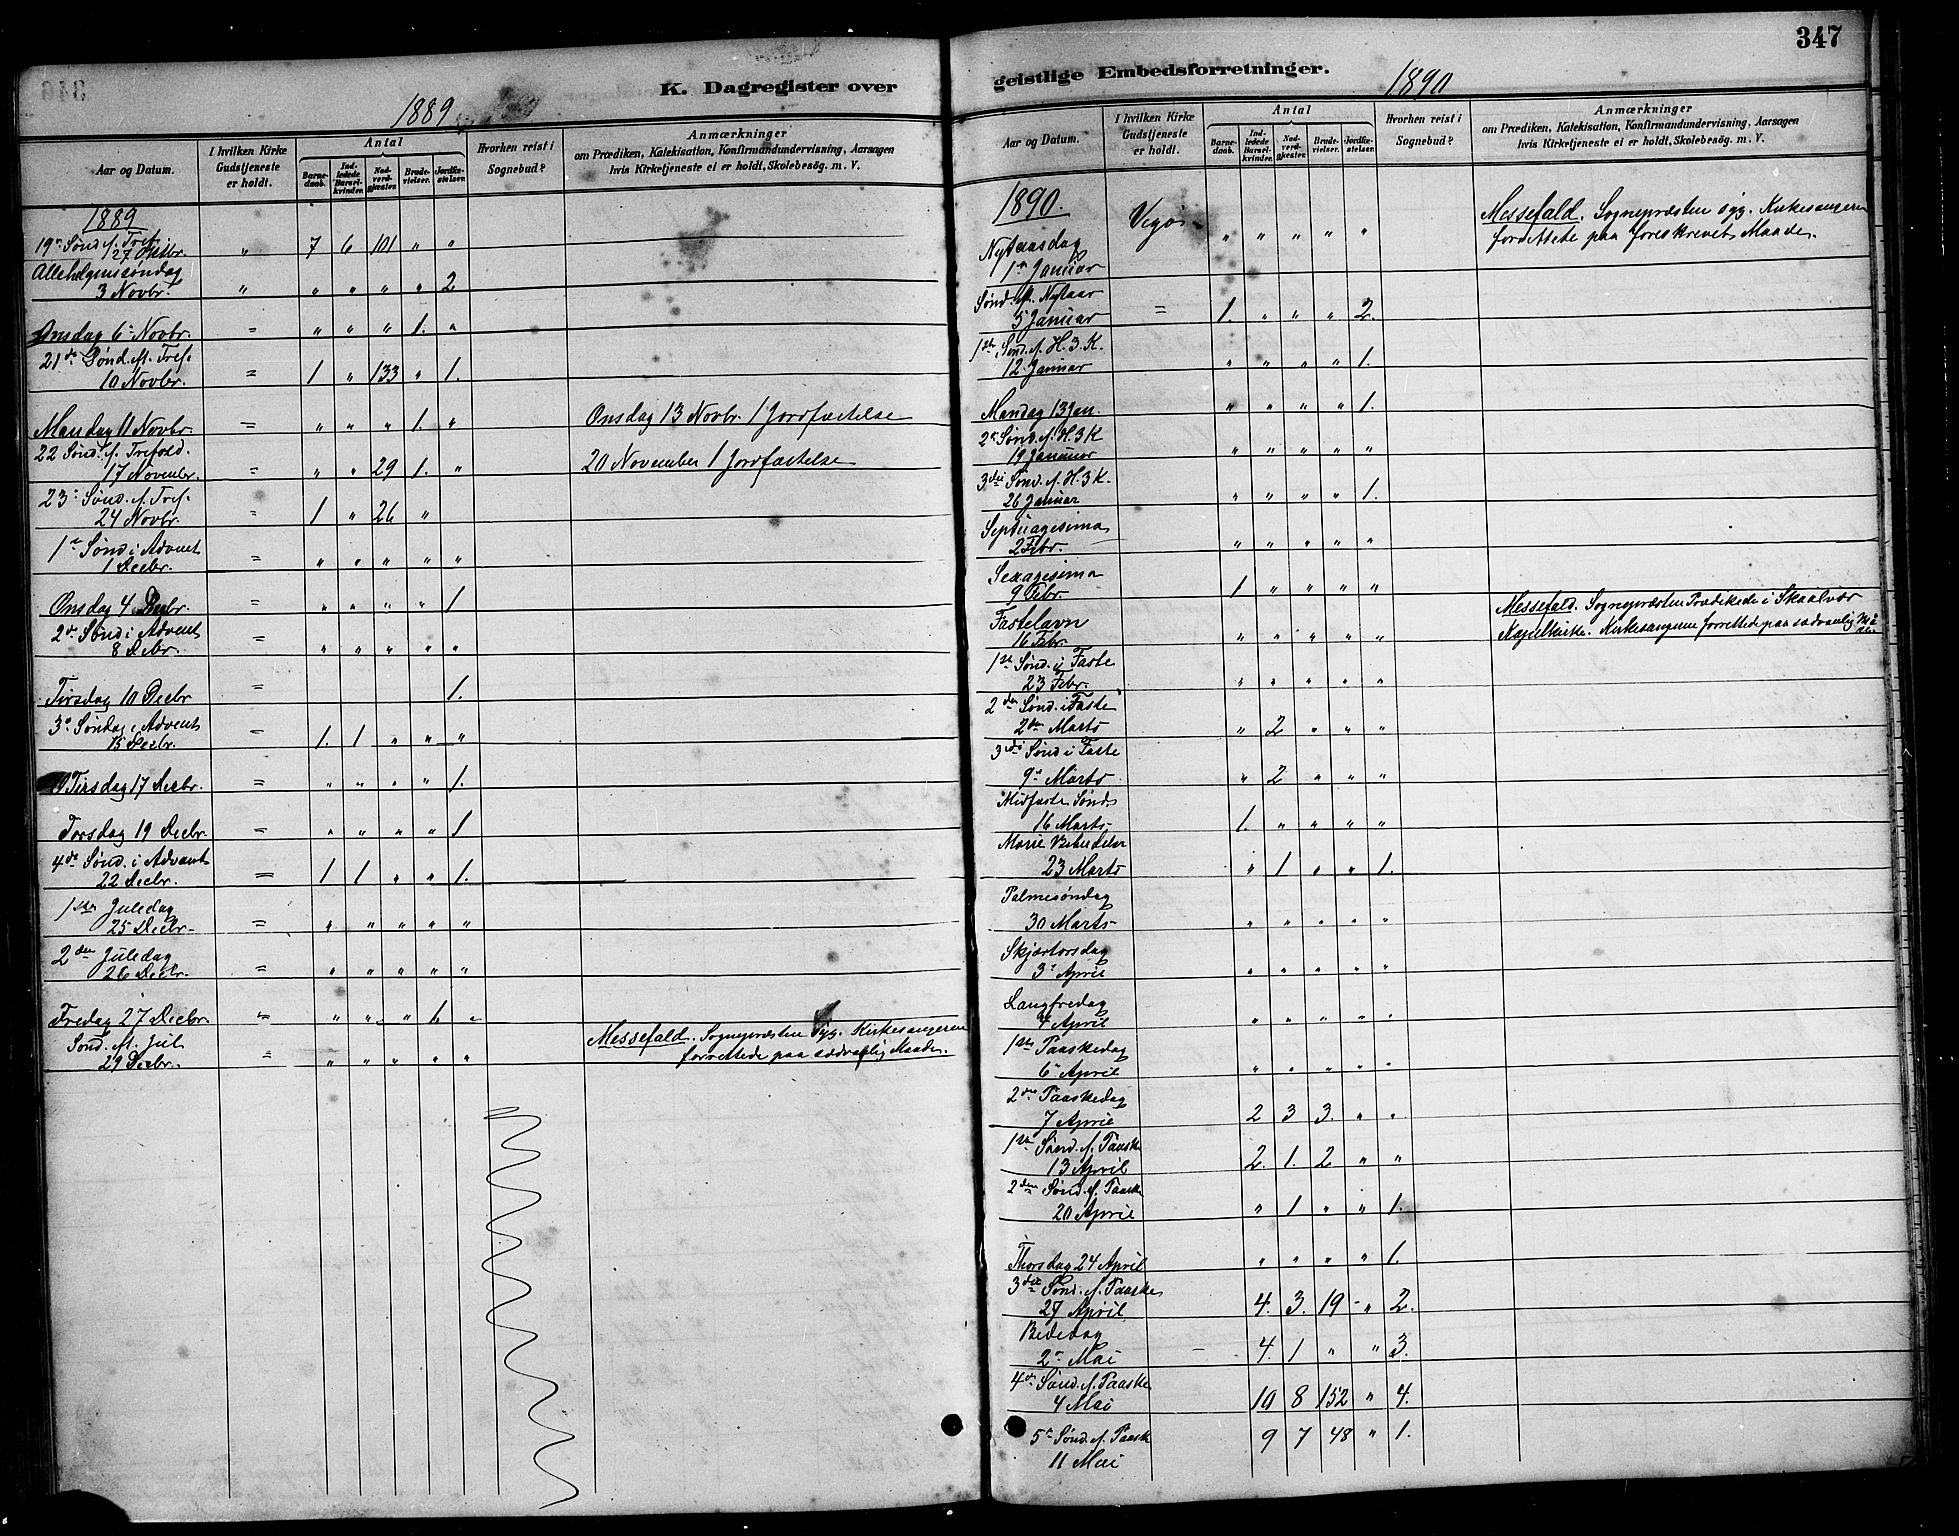 K. Dagregister over
1889
Aar og Datum.
I hvilken Kirke Gudstjeneste er holdt.
Antal
Barnedaab.
Indledede Barselkvinder.
Nadverdgjester.
Brudevielser.
Jordfæstelser.
Hvorhen reist i Sognebud?
Anmærkninger
om Prædiken, Katekisation, Konfirmandundervisning, Aarsagen
hvis Kirketjeneste ei er holdt, Skolebesøg. m. V.
1889
19 Sønd. e. Tref.
27 Oktbr. " 7 6 101 " "
Allehelgenssøndag
3 Novbr. " " " " " 2
Onsdag 6 Novbr. = " " " 1. "
21de Sønd. e. Tref.
10 Novbr. = 1 " 133 " 1.
Mandag 11 Novbr. = " " " 1. " Onsdag 13 Novbr. 1 Jordfæstelse
22 Sønd. e. Trefold.
17 Novembr. = " " 29 1. " 20 November 1 Jordfæstelse
23 Sønd. e. Tref.
24 Novbr. = 1 " 26 "
1e Sønd i Advent
1 Decbr. = " " " " "
Onsdag 4 Decbr. = " " " " 1
2de Sønd i Advent
8 Decbr. = " " " " "
Tirsdag 10 Decbr = 1.
3e Søndag i Advent
15 Decbr. = 1. 1 " " "
Tirsdag 17 Decbr. = " " " " 1.
Torsdag 19 Decbr = " " " " 1
4de Sønd. i Advent
22 Decbr. = 1 1 " " 1.
1ste Juledag
25 Decbr. = " " " " "
2den Juledag
26 Decbr. = " " " " "
Fredag 27 Decbr. " " " " 1. "
Sønd. e. Jul
29 Decbr. = " " " " " Messefald. Sognepræsten syg. Kirkesangeren
forrettede paa sædvanlig Maade.
347
geistlige Embedsforretninger.
1890
Aar og Datum.
I hvilken Kirke Gudstjeneste er holdt.
Antal
Barnedaab.
Indledede Barselkvinder.
Nadverdgjester.
Brudevielser.
Jordfæstelser.
Hvorhen reist i Sognebud?
Anmærkninger
om Prædiken, Katekisation, Konfirmandundervisning, Aarsagen
hvis Kirketjeneste ei er holdt, Skolebesøg. m. V.
1890.
Nytaarsdag Vegø " " " " " Messefald. Sognepræsten syg. Kirkesangeren
1e Januar forrettede paa foreskrevet Maade.
Sønd. e. Nytaar
5 Januar = 1. " " " 2.
1ste Sønd. e. H. 3 K.
12 Januar " " " " 1.
Mandag 13 Jan. " " " " 1.
2e Sønd. e. H. 3 K
19 Januar " " " " "
3die Sønd. e. H. 3 K.
26 Januar " " " " 1.
Septuagesima
2 Febr. " " " " "
Sexagesima
9 Febr 1 " " " "
Fastelavn Messefald. Sognepræsten Prædikede i Skaalvær
16 Febr. " " " " " Kapelkirke. Kirkesangeren forrettede paa sædvanlig
1ste Sønd. i Faste
23 Febr. " " " " "
2den Sønd. i Faste
2den Marts " 2 " " "
3die Sønd i Faste
9e Marts " 2 " " "
Midfaste Sønd
16 Marts 1. " " " "
Marie Bebudelse
23 Marts " 1 " " 1.
Palmesøndag
30 Marts " " " " "
Skjærtorsdag
3 April " " " " "
Langfredag
4 April " " " " "
1ste Paaskedag
6 April " " " " "
2den Paaskedag
7 April 2 3 3. " "
1ste Sønd. e. Paaske
13 April 2. 1. 2 " "
2den Sønd. e. Paaske
20 April " 1 " " 1.
Thorsdag 24 April " " " " 1.
3die Sønd. e. Paaske
27 April 4. 3. 19 " 2.
Bededag
2 Mai 4. 1 " " 3.
4de Sønd. e. Paaske
4 Mai 10 8 152 " 4.
5te Sønd. e. Paaske 9 7 48 " 1.
11 Mai